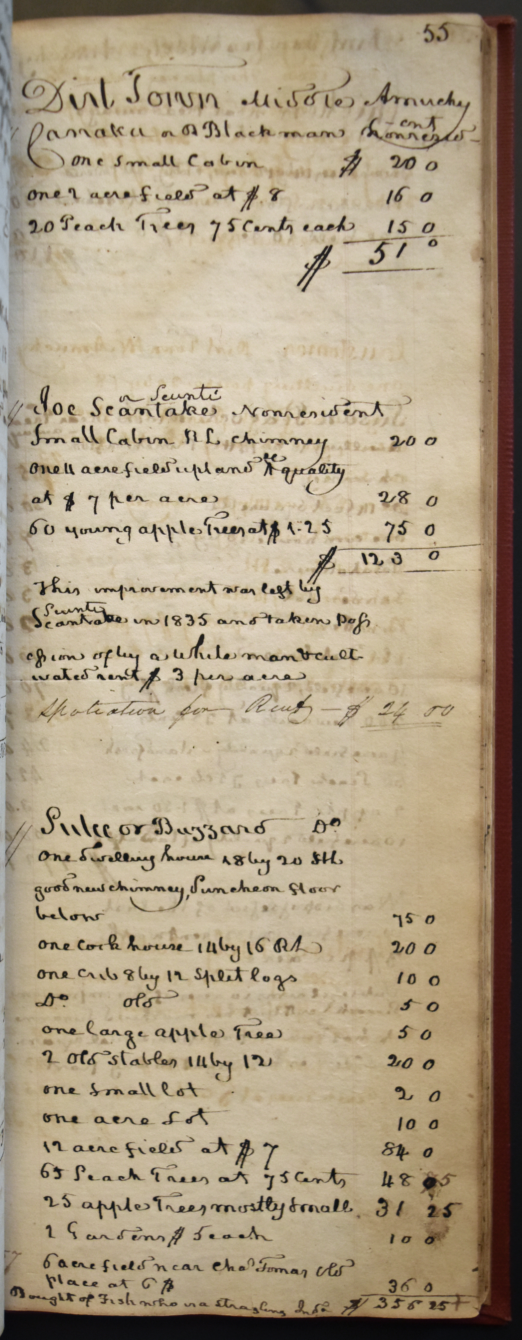 55
Dirt Town Middle Armuchy
Canaku or A Black man Nonresident
one small Cabin $ 20 0
one 2 acre field at $ 8 16 0
20 Peach Trees 75 Cents each 15 0
$ 51 0
or Scunti
Joe Scantake Nonresident
Small Cabin R L chimney 20 0
one 4 acre field upland quality
at $ 7 per acre 28 0
60 young apple Trees at $ 1.25 75 0
$ 123 0
This improvement was left by
Scunti
Scantake in 1835 and taken poss
ession of by a White man & cult
ivated rent $ 3 per acre
Spoliation for Rent — $ 24 00
Sukee or Buzzard Do
one dwelling house 18 by 20 SHL
good new chimney, Puncheon floor
below 75 0
one cook house 14 by 16 RL 20 0
one crib 8 by 12 Split logs 10 0
Do old 5 0
one large apple Tree 5 0
2 old stables 14 by 12 20 0
one small lot 2 0
one acre Lot 10 0
12 acre field at $ 7 84 0
65 Peach Trees at 75 Cents 48 75
25 apple Trees mostly small 31 25
2 Gardens $ 5 each 10 0
6 acre field near Old
place at 6 $ 36 0
Bought of Fish who is a Stragling Indn $ 356 25